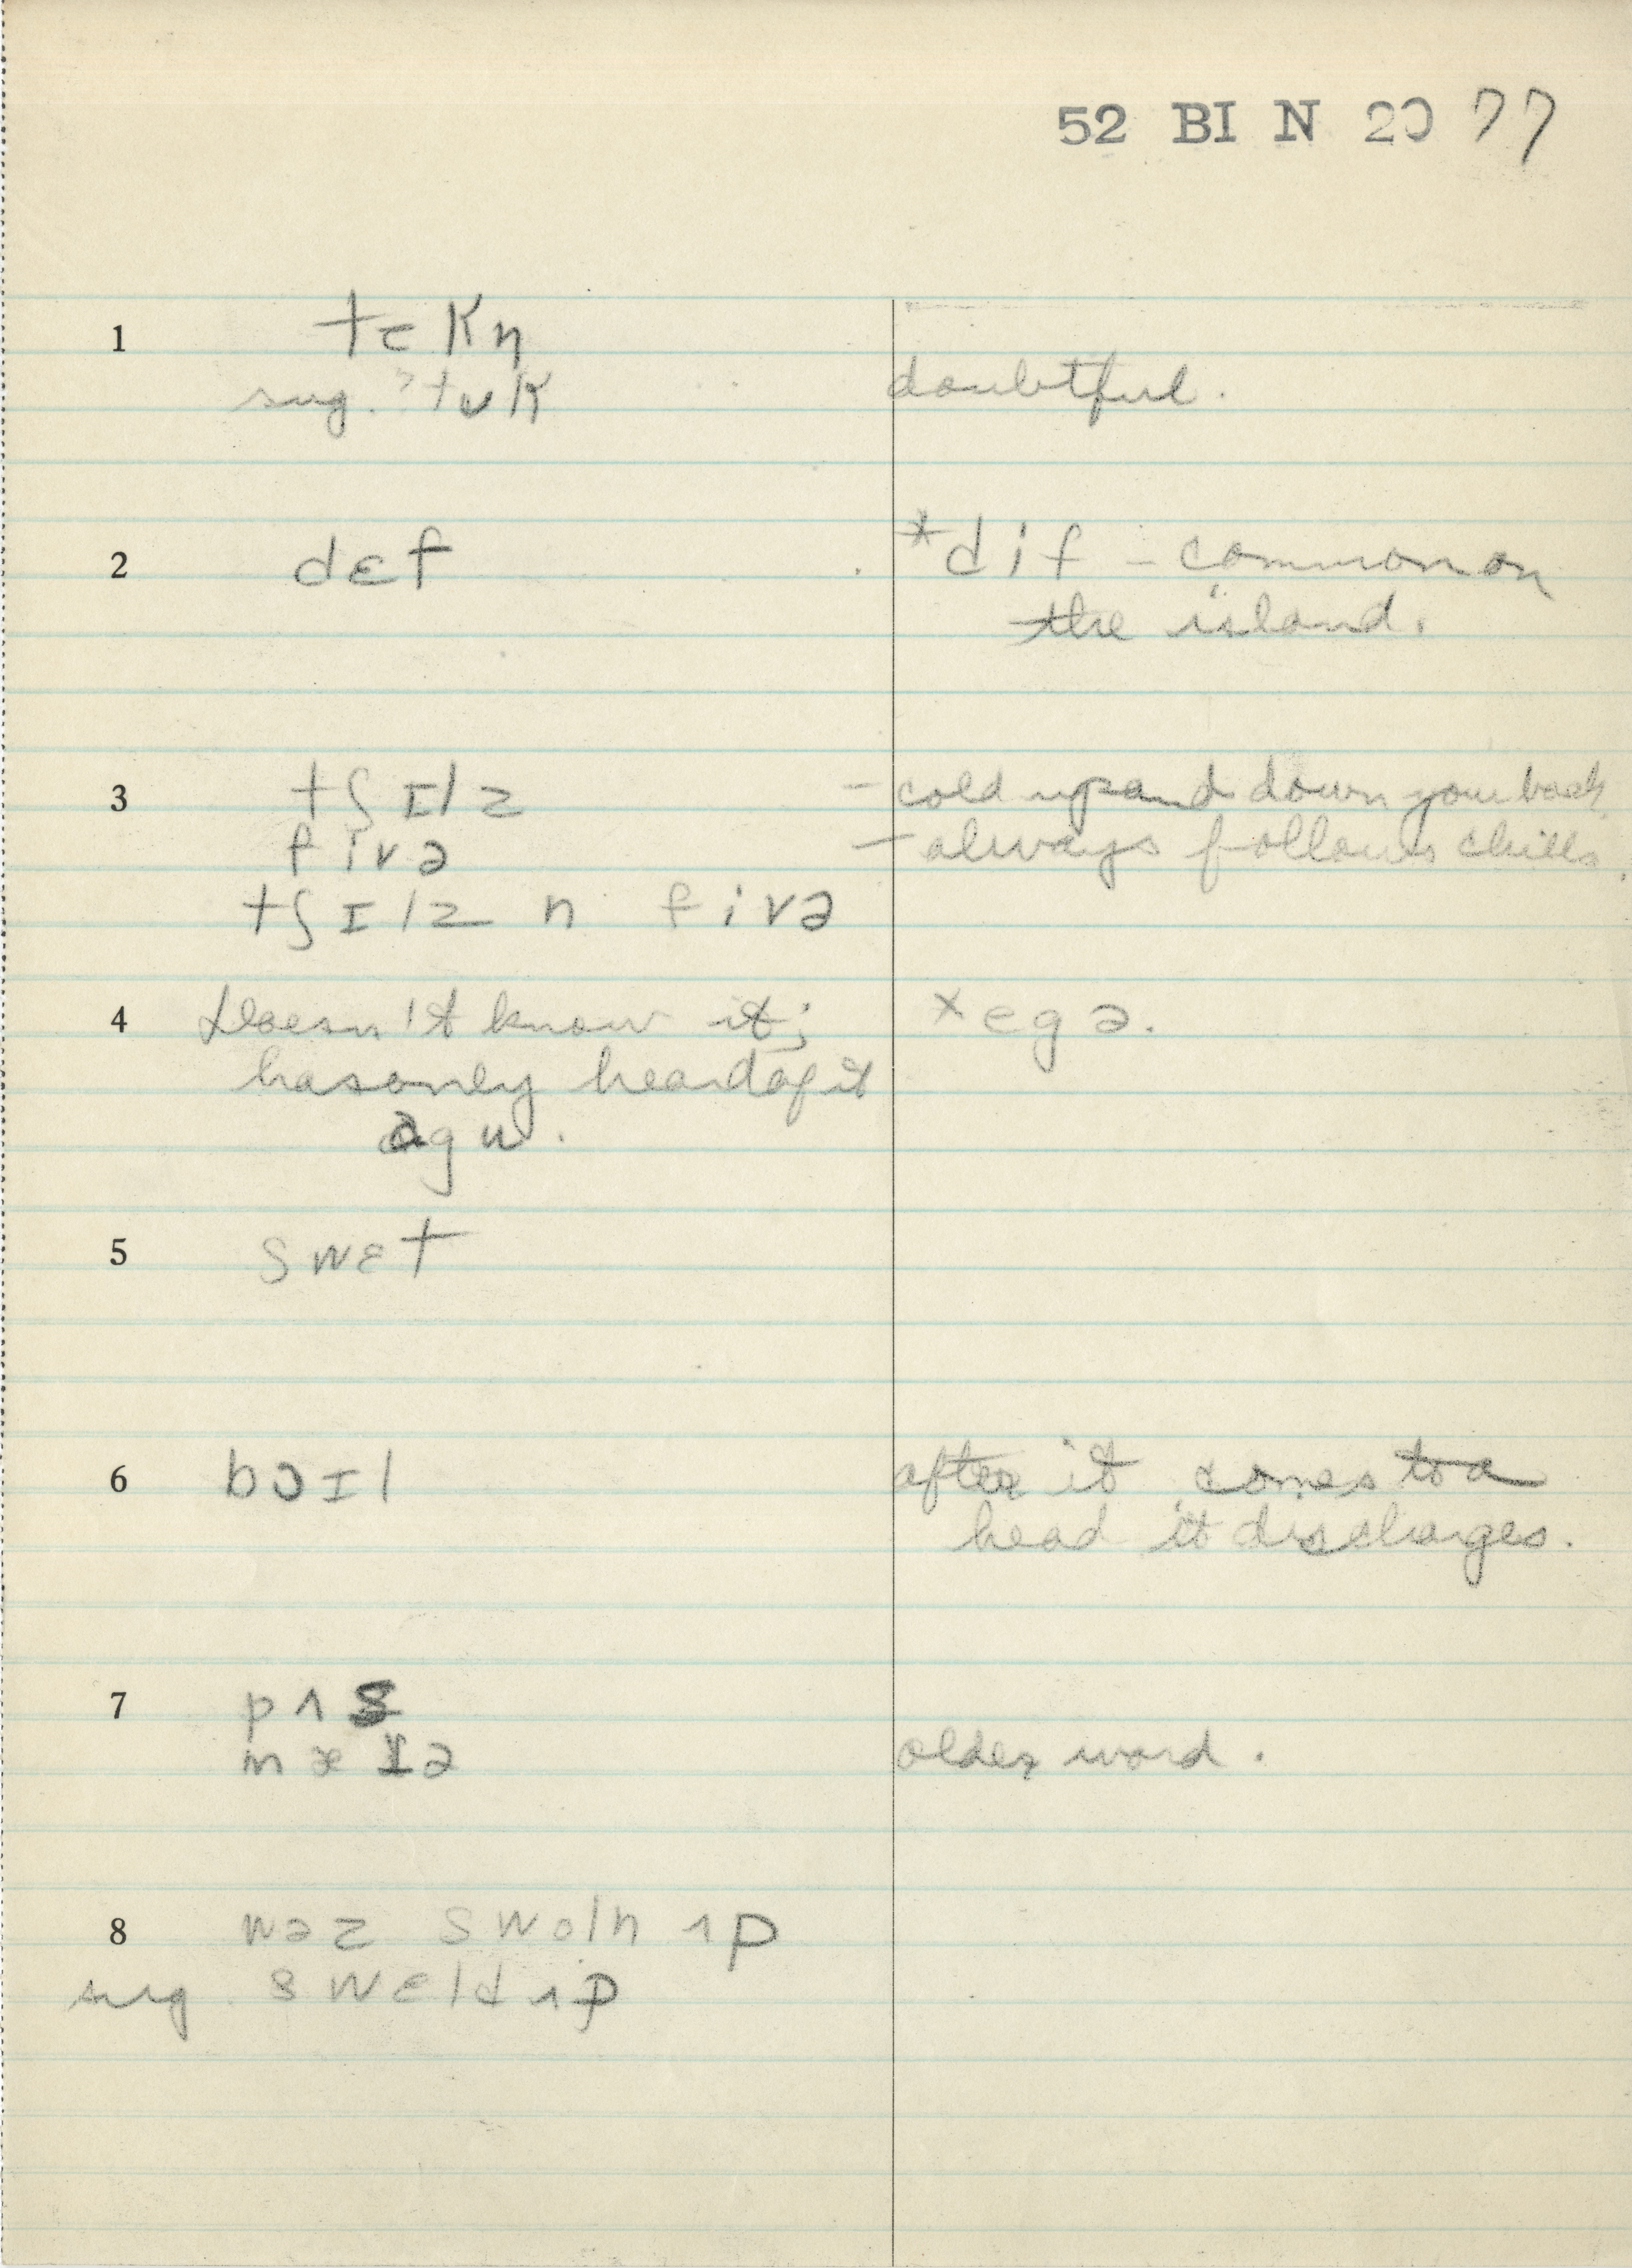 52 BI N 20 77
1 tekn
sug. ? tʊk doubtful.
2 dɛf *dif – common on
the island.
3 tʃɪlz – cold up and down your back
fivə – always follows chills.
tʃɪlz n fivə
4 Doesn't know it; *egə.
has only heard of it
agu.
5 swɛt
6 bɔɪl after it comes to a
head it discharges.
7 pʌs
mætə older word.
8 wəz swoln ʌp
sug. swɛld ʌp